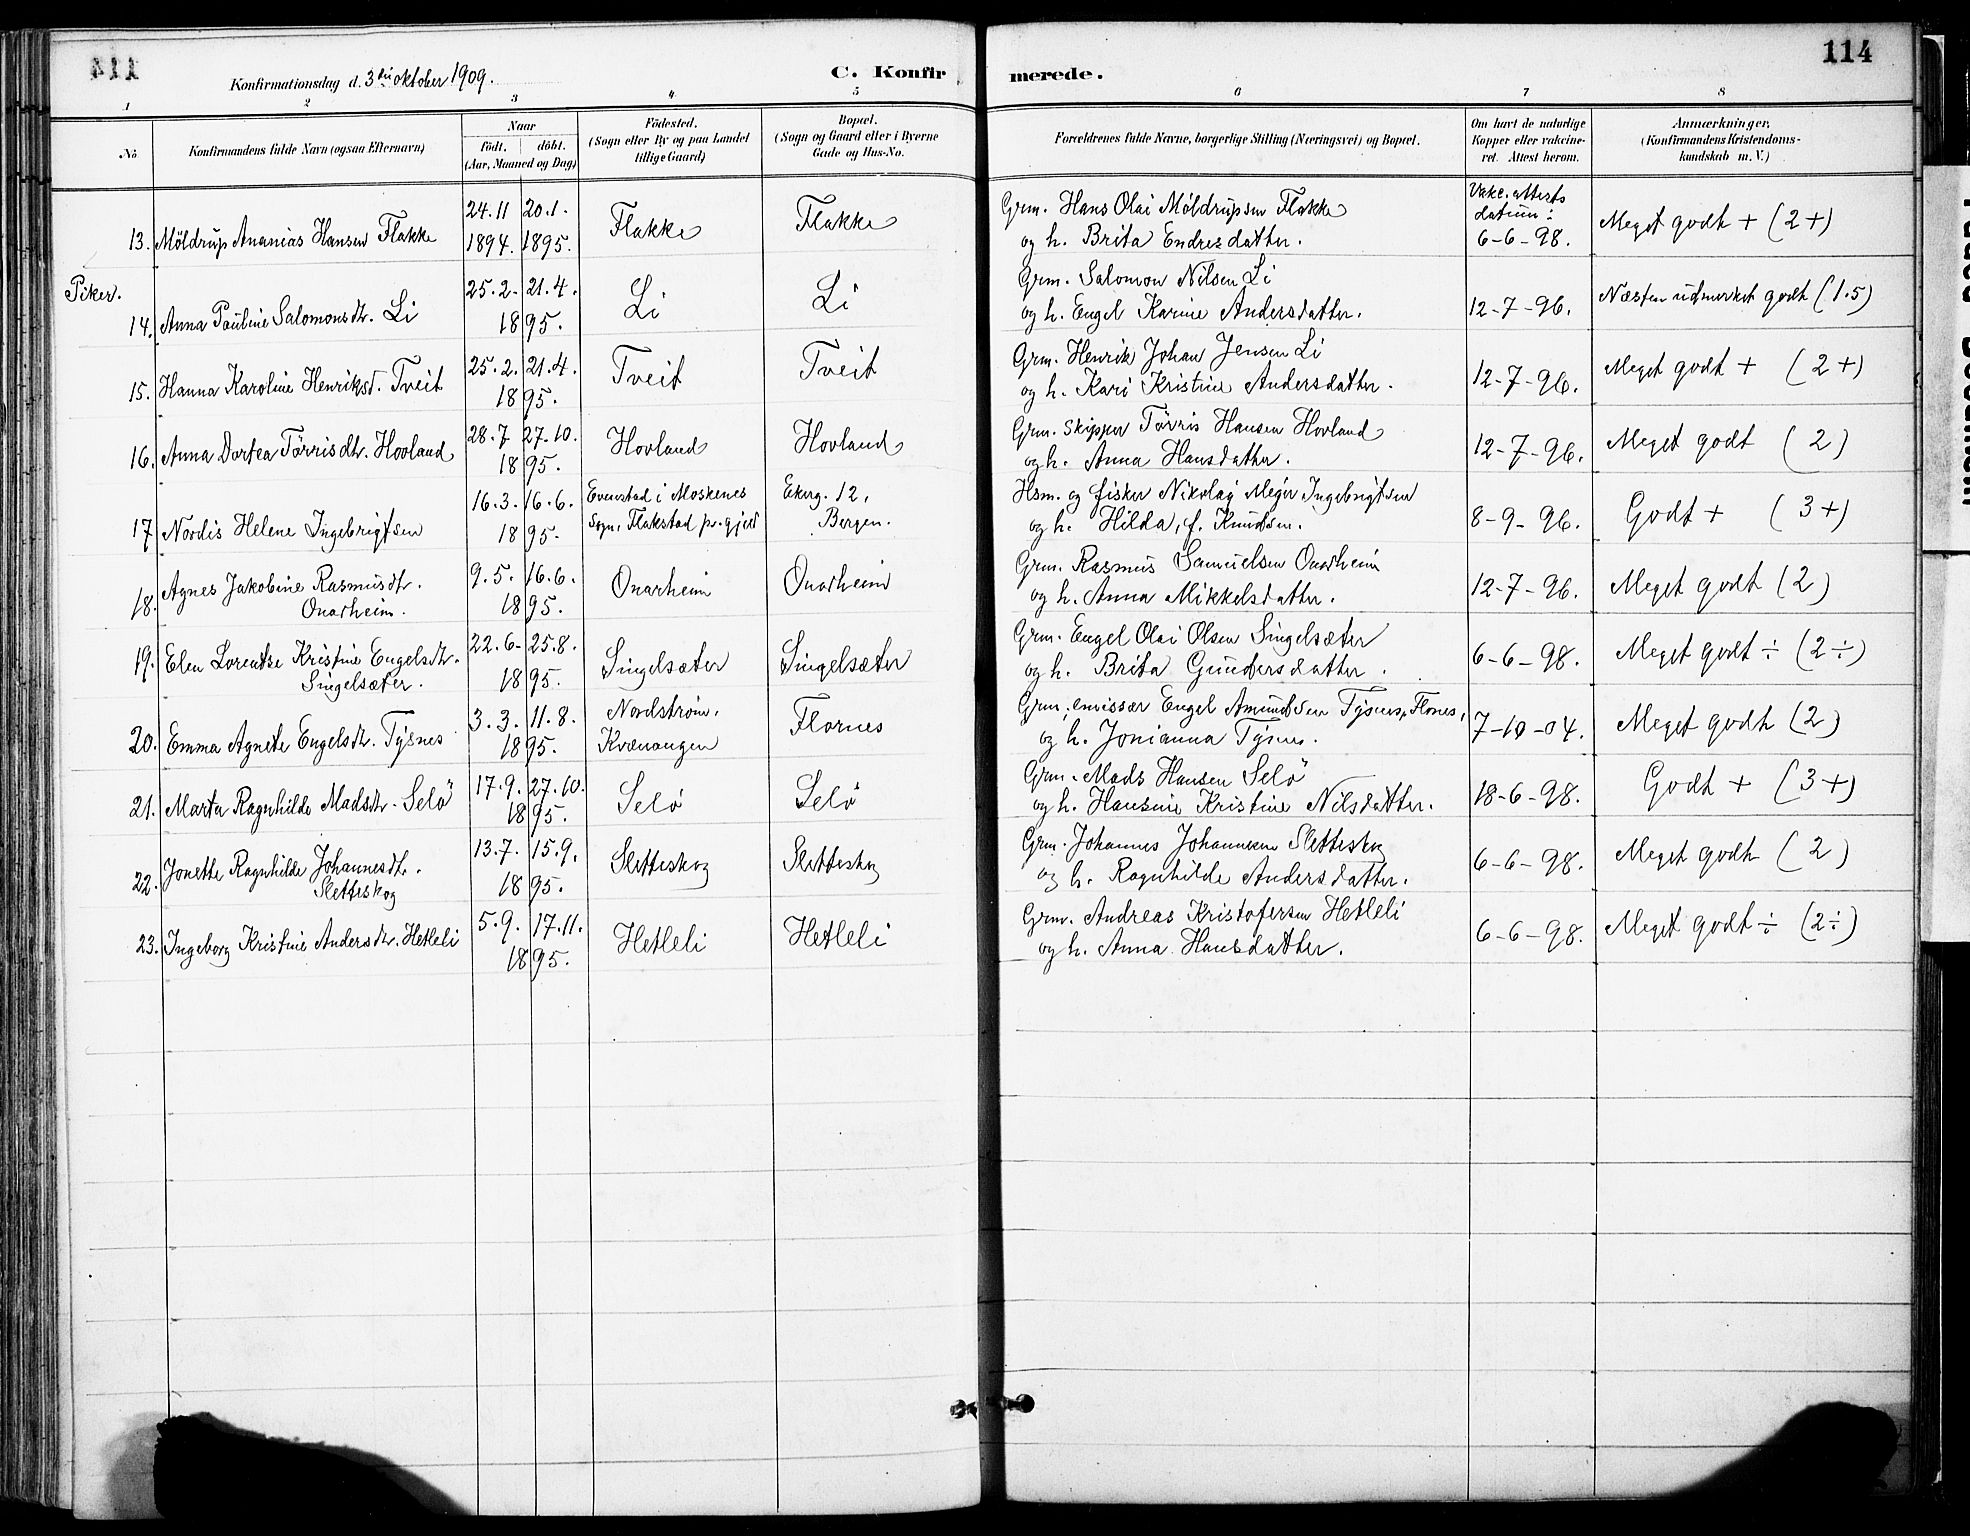 114
Konfirmationsdag d. 3die oktober 1909.
C. Konfirmerede.
1 2 3 4 5 6 7 8
No
Konfirmandens fulde Navn (ogsaa Efternavn)
Naar
födt. döbt.
(Aar, Maaned og Dag)
Födested.
(Sogn eller By og paa Landet
tillige Gaard)
Bopæl.
(Sogn og Gaard eller i Byerne
Gade og Hus-No.
Forældrenes fulde Navne, borgerlige Stilling (Næringsvei) og Bopæl.
Om havt de naturlige
Kopper eller vakcine-
ret. Attest herom.
Anmærkninger.
(Konfirmandens Kristendoms-
kundskab m. V.)
13. Möldrup Ananias Hansen Flakke 24.11 1894. 20.1. 1895. Flakke Flakke Grm. Hans Olai Möldrupsen Flakke
og h. Brita Endresdatter. Vakc. attests datum: 6-6-98. Meget godt + (2+)
Piker.
14. Anna Pauline Salomonsdtr. Li 25.2. 21.4. 1895. Li Li Grm. Salomon Nilsen Li
og h. Engel Karine Andersdatter. 12-7-96. Næsten udmerket godt (1.5)
15. Hanna Karoline Henriksd. Tveit 25.2. 21.4. 1895. Tveit Tveit Grm. Henrik Johan Jensen Li
og h. Kari Kristine Andersdatter. 12-7-96. Meget godt + (2+)
16. Anna Dortea Tørrisdtr. Hovland 28.7 27.10. 1895. Hovland Hovland Grm. Skipper Tørris Hansen Hovland
og h. Anna Hansdatter. 12-7-96. Meget godt (2)
17 Nordis Helene Ingebrigtsen 16.3. 16.6. 1895. Evenstad i Moskenes
Sogn, Flakstad pr.gjeld Ekrg. 12,
Bergen. Hsm. og fisker Nikolay Meyer Ingebrigtsen
og h. Hilda, f. Knudsen. 8-9-96. Godt + (3+)
18. Agnes Jakobine Rasmusdtr.
Onarheim. 9.5. 16.6. 1895. Onarheim Onarheim Grm. Rasmus Samuelsen Onarheim
og h. Anna Mikkelsdatter. 12-7-96. Meget godt (2)
19. Elen Lorentse Kristine Engelsdtr.
Singelsæter. 22.6- 25.8. 1895. Singelsæter Singelsæter Grm. Engel Olai Olsen Singelsæter
og h. Brita Gundersdatter. 6-6-98. Meget godt ÷ (2÷)
20. Emma Agnete Engelsdtr. Tysnes 3.3. 11.8. 1895. Nordstrøm,
Kvænangen Flornes Grm., emissær Engel Amundsen Tysnes, Flornes,
og h. Jonianna Tysnes. 7-10-04. Meget godt (2)
21. Marta Ragnhilde Madsdtr. Selö 17.9. 27.10. 1895. Selö Selö Grm. Mads Hansen Selö
og h. Hansine Kristine Nilsdatter. 18-6-98. Godt + (3+)
22. Jonette Ragnhilde Johannesdtr.
Sletteskog 13.7. 15.9. 1895. Sletteskog Sletteskog Grm. Johannes Johannesen Sletteskog
og h. Ragnhilde Andersdatter. 6-6-98. Meget godt (2)
23. Ingeborg Kristine Andersdtr. Hetleli 5.9. 17.11. 1895. Hetleli Hetleli Grm. Andreas Kristofersen Hetleli
og h. Anna Hansdatter. 6-6-98. Meget godt ÷ (2÷)